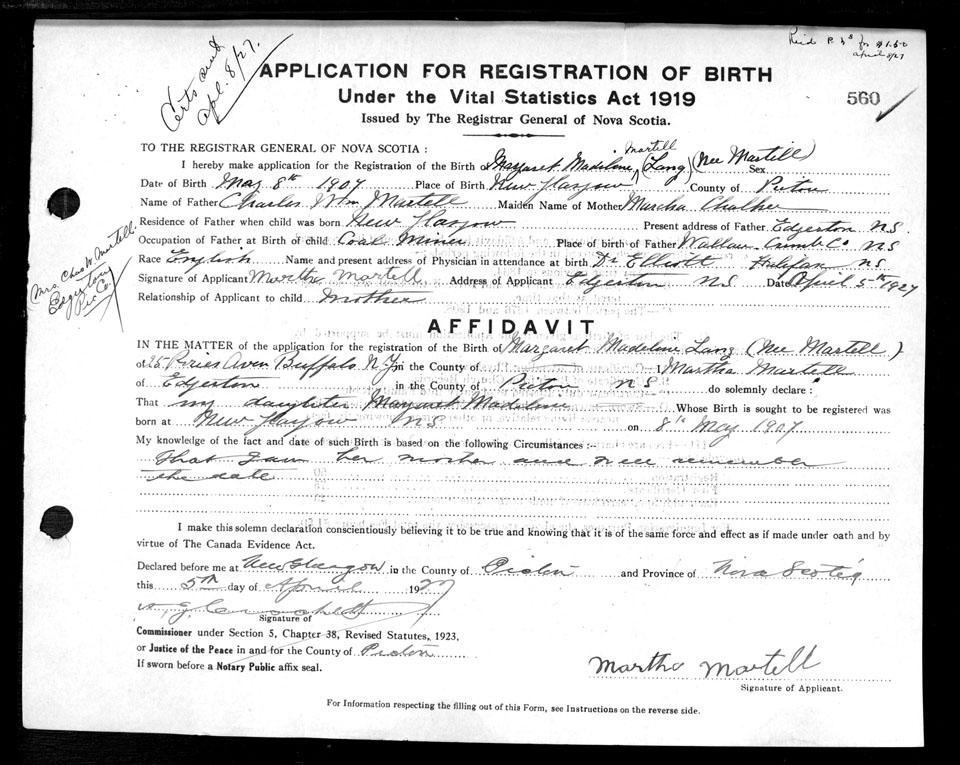 Certs sent
Apl. 8/27.
for $1.50
april 8/27
APPLICATION FOR REGISTRATION OF BIRTH
Under the Vital Statistics Act 1919
560
Issued by The Registrar General of Nova Scotia.
TO THE REGISTRAR GENERAL OF NOVA SCOTIA :
Martell
I hereby make application for the Registration of the Birth of Margaret Madeline (Lang) (Nee Martell) Sex
Date of Birth May 8th 1907 Place of Birth New Glasgow County of Pictou
Name of Father Charles Wm Martell Maiden Name of Mother Martha Chalker
Residence of Father when child was born New Glasgow Present address of Father Edgerton N S.
Occupation of Father at Birth of child Coal Miner Place of Birth of Father Wallace Cumb. Co. N S
Race English Name and present address of Physician in attendance at birth Dr Elliott Halifax N S
Signature of Applicant Martha Martell Address of Applicant Edgerton N S Date April 5th 1927
Relationship of Applicant to child Mother
Mrs. Chas W. Martell.
Edgerton
Pic Co.
AFFIDAVIT
IN THE MATTER of the application for the registration of the Birth of Margaret Madeline Lang (Nee Martell)
of 25 Aven Buffalo N.Y. in the County of I Martha Martell
of Edgerton in the County of Pictou N S do solemnly declare :
That my daughter Margaret Madeline Whose Birth is sought to be registered was
born at New Glasgow N S on 8th May 1907
My knowledge of the fact and date of such Birth is based on the following Circumstances :—
That I am her mother and well remember
the date
I make this solemn declaration conscientiously believing it to be true and knowing that it is of the same force and effect as if made under oath and by
virtue of The Canada Evidence Act.
Declared before me at New Glasgow in the County of Pictou and Province of Nova Scotia
this 5th day of April 1927
Signature of
Commissioner under Section 5, Chapter 38, Revised Statutes, 1923,
or Justice of the Peace in and for the County of Pictou
If sworn before a Notary Public affix seal.
Martha Martell
Signature of Applicant.
For Information respecting the filling out of this Form, see Instructions on the reverse side.